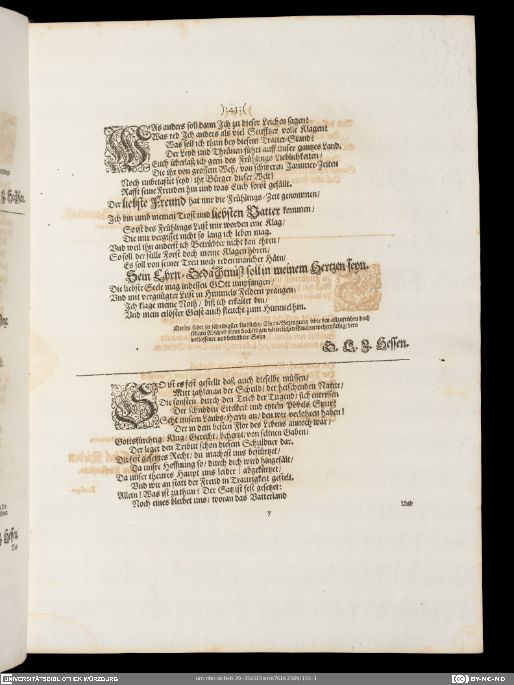 ):43:(
WAs anders soll dann Jch zu dieser Leichen sagen?
Was red Jch anders als viel Seufftzer volle Klagen?
Was soll ich thun bey diesem Trauer-Stand?
Der Leyd und Thränen führt auff unser gantzes Land.
Euch überlaß ich gern des Frühlings Lieblichkeiten/
Die ihr von grossem Weh/ von schweren Jammer-Zeiten
Noch unbetastet seyd/ ihr Bürger dieser Welt/
Rafft seine Freuden hin und was Euch sonst gefällt.
Der liebste Freund hat mir die Frühlings-Zeit genommen/
Jch bin umb meinen Trost und liebsten Vatter kommen/
Sonst des Frühlings Lust mir worden eine Klag/
Die mir vergisset nicht so lang ich leben mag.
Und weil ihn anderst ich Betrübter nicht kan ehren/
So soll der stille Forst doch meine Klagen hören/
Es soll von seiner Treu noch reden mancher Häin/
Sein Ehrn-Gedächtnuß soll in meinem Hertzen seyn.
Die liebste Seele mag indessen GOtt umpfangen/
Und mit vergnügter Lust in Himmels Feldern prangen;
Jch klage meine Noth/ biß ich erkalter bin/
Und mein erlöster Geist auch fleucht zum Himmel hin.
Hessen.
SO ist es fest gestellt daß auch dieselbe müssen/
Mitt zahlen an der Schuld/ der haischenden Natur/
Die sonsten durch den Trieb der Tugend/ sich entrissen
Der schnöden Eitelkeit und eyteln Pöbels Spur?
Seht unsern Landes-Herrn an/ den wir verlohren haben!
Der in dem besten Flor des Lebens annoch war/
Gottsfürchtig/ Klug/ Gerecht/ behertzt/ von seltnen Gaben/
Der leget den Tribut schon diesem Schuldner dar.
Du fest gesetztes Recht/ du machst uns bestürtzet/
Da unsre Hoffnung so/ durch dich wird hingefällt/
Da unser theures Haupt uns leider/ abgekürtzet/
Und wir an statt der Freud in Traurigkeit gestellt.
Allein! Was ist zu thun? Der Satz ist fest gesetzet:
Noch eines bleibet uns/ woran das Vatterland
y
Und
UNIVERSITÄTSBIBLIOTHEK WÜRZBURG
CC BY-NC-ND